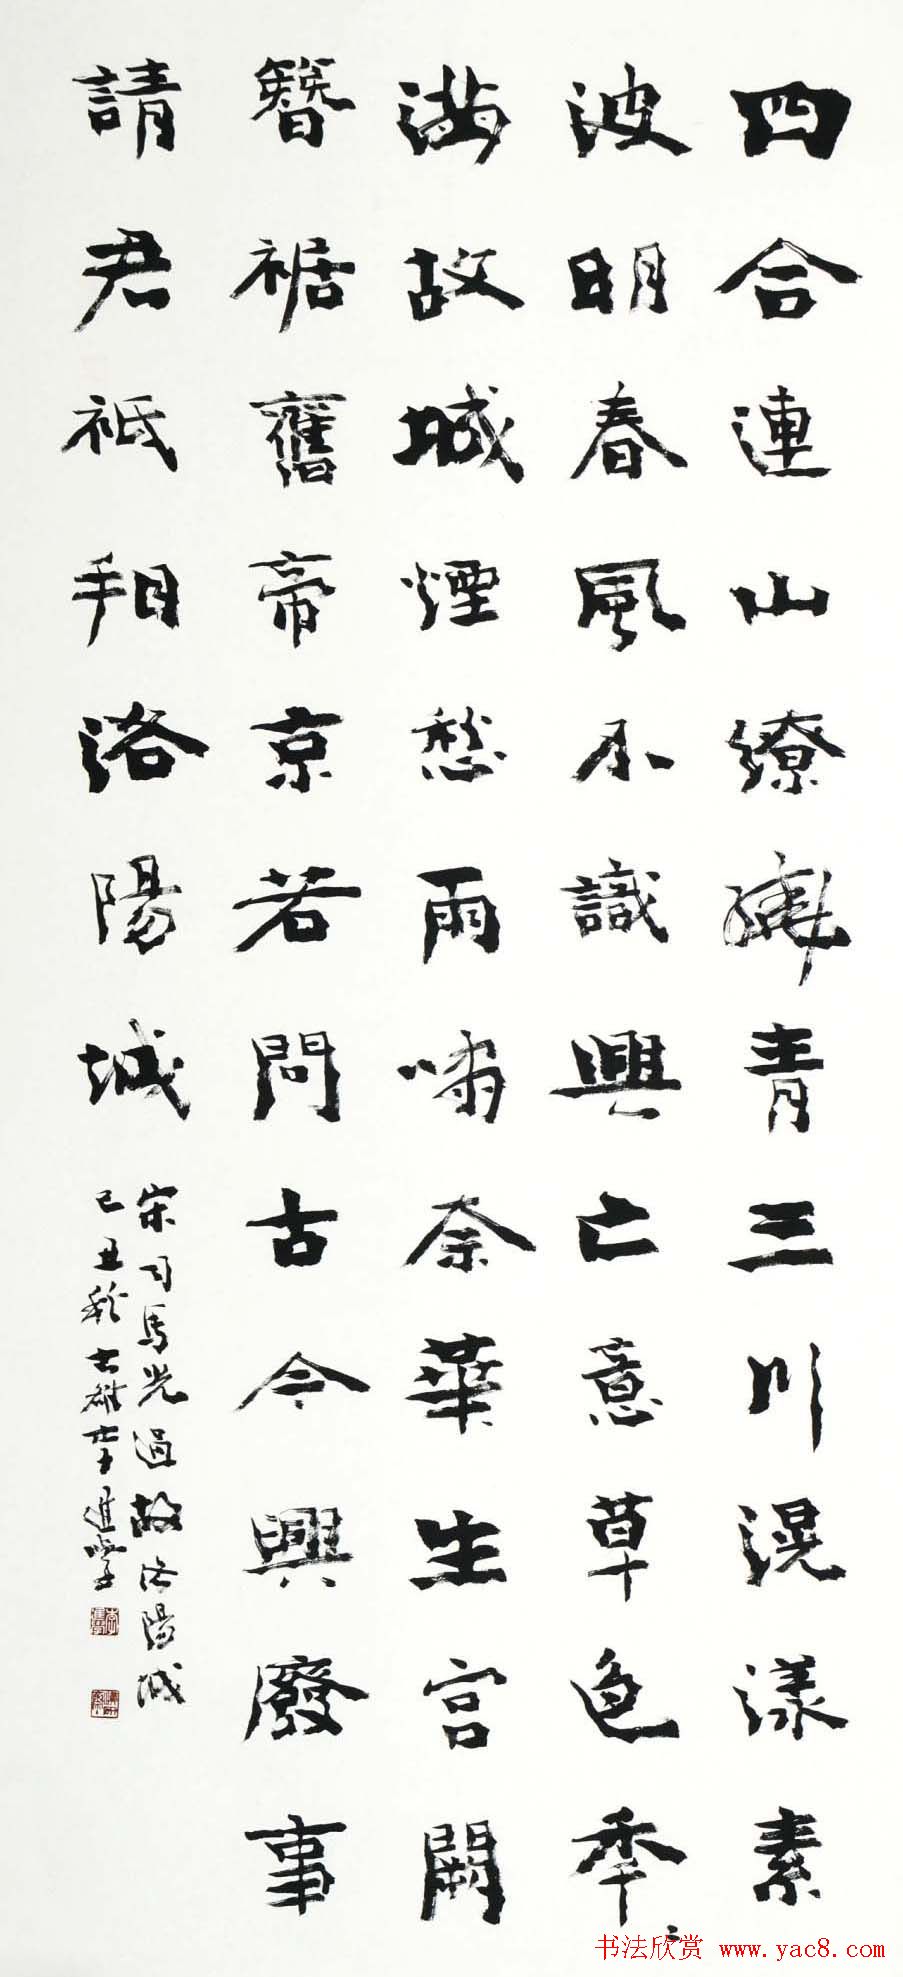 四合連山繚繞青三川滉漾素
波明春風不識興亡意草色年〻
滿故城煙愁雨嘯奈華生宮闕
簪裾舊帝京若問古今興廢事
請君祗看洛陽城
宋司馬光過故洛陽城
己丑秋古雍李進學
书法欣赏 www.yac8.com